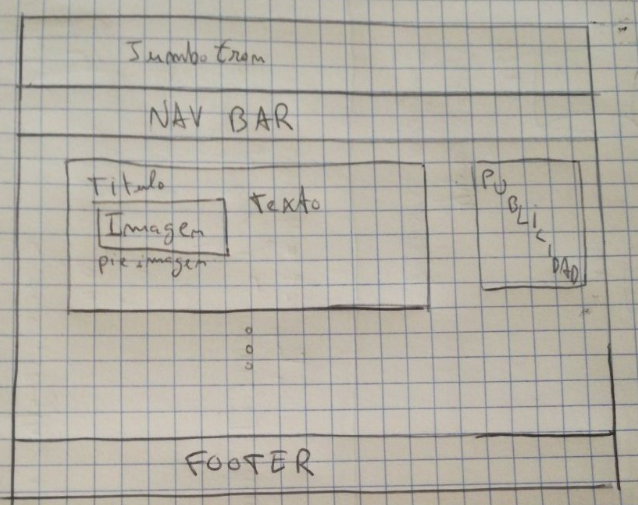 Jumbotron
NAV BAR
Titulo
Imagen
pie imagen
Texto
PUBLICIDAD
FOOTER